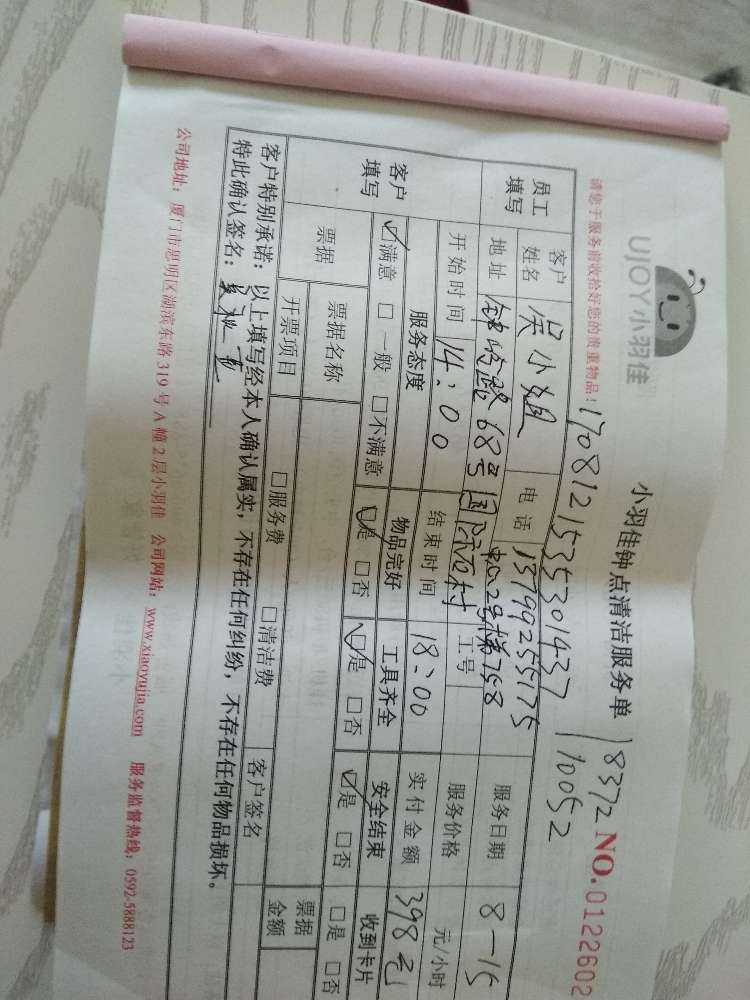 UJOY小羽佳
小羽佳钟点清洁服务单
18372
NO.0122602
10052
请您于服务前收拾好您的贵重物品！
1708121535301437
员工填写
客户姓名 吴小姐 电话 13799255175 服务日期 8-15
地址 68号国际石村 2号梯758 服务价格 元/小时
开始时间 14:00 结束时间 18:00 工号 实付金额 398元
客户填写
服务态度 物品完好 工具齐全 安全结束 收到卡片
☑满意 □一般 □不满意 ☑是 □否 ☑是 □否 ☑是 □否 □是 □否
票据 票据名称 票据金额
开票项目 □服务费 □清洁费 客户签名
客户特别承诺：以上填写经本人确认属实，不存在任何纠纷，不存在任何物品损坏。
特此确认签名：
公司地址：厦门市思明区湖滨东路319号A幢2层小羽佳 公司网站：www.xiaoyujia.com 服务监督热线：0592-5888123